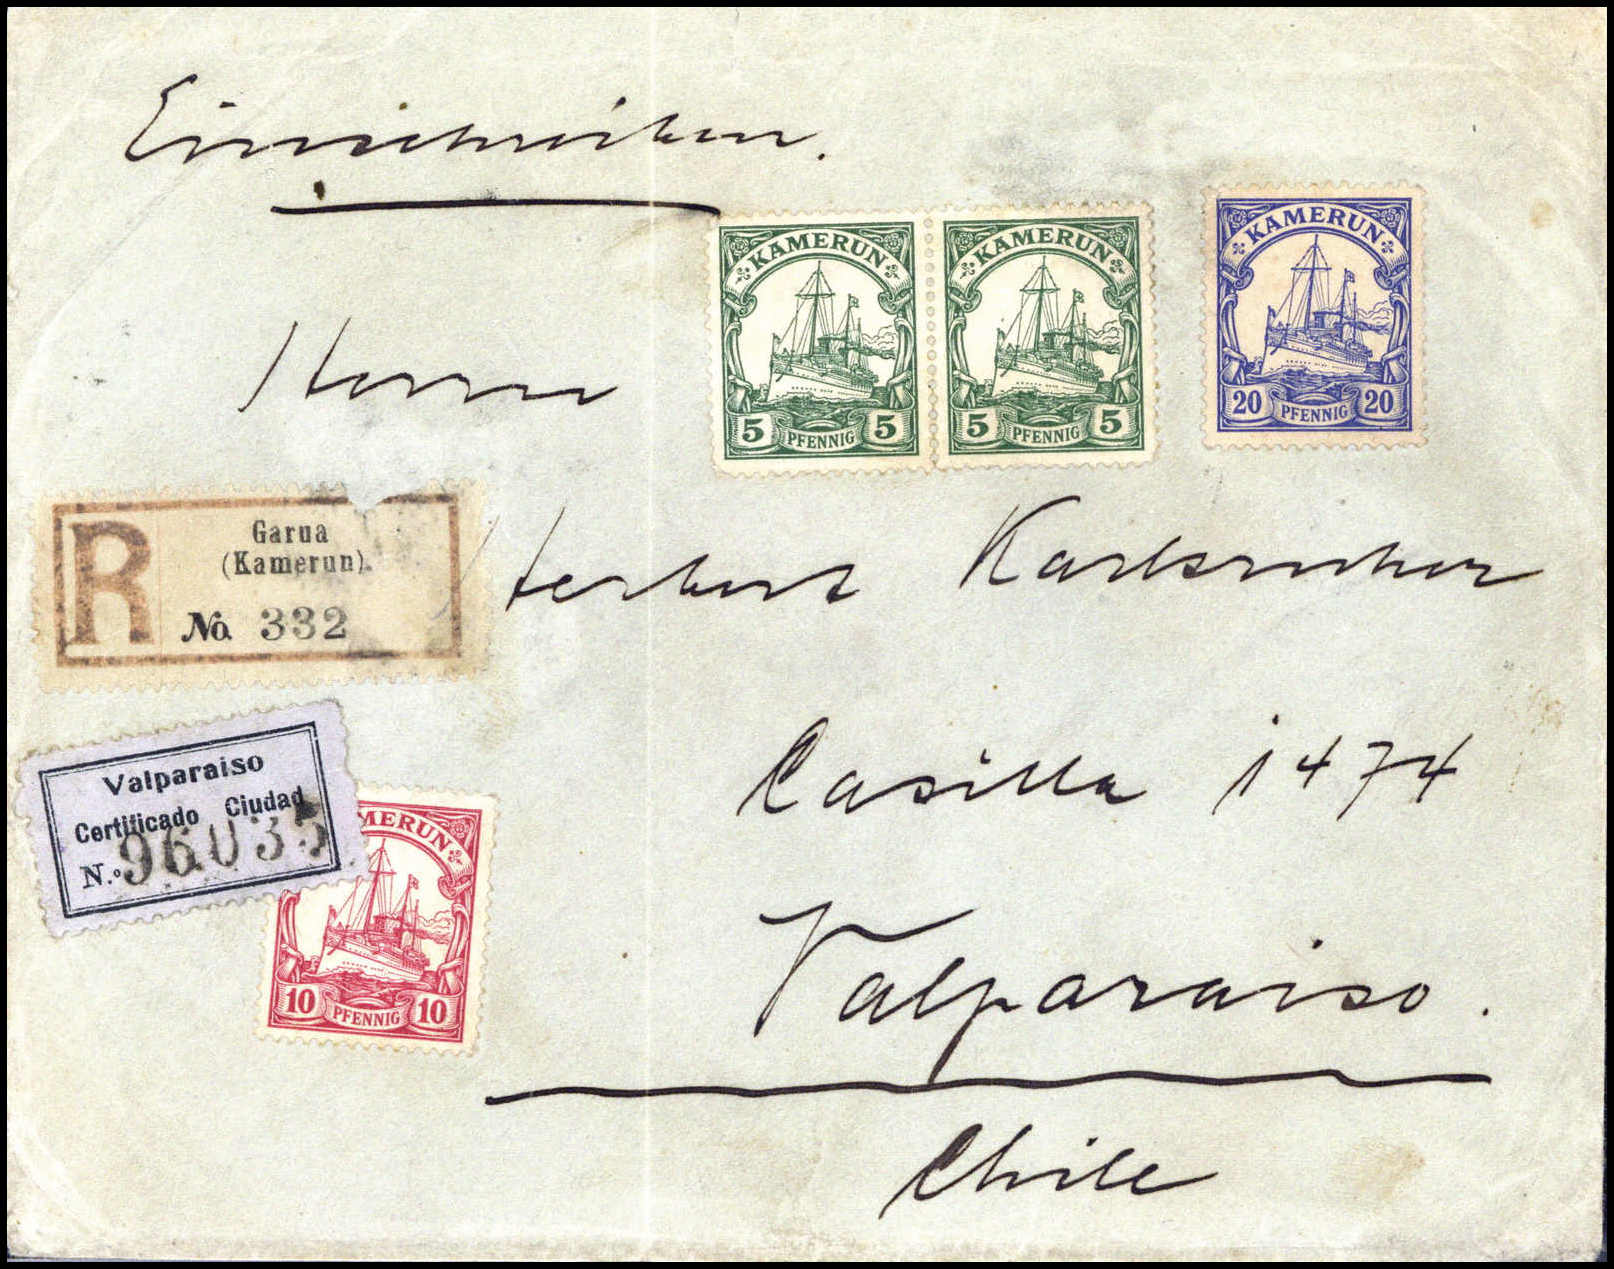 Einschreiben.
KAMERUN
5 PFENNIG 5
KAMERUN
5 PFENNIG 5
KAMERUN
20 PFENNIG 20
Herrn
Herbert Karlsruher
Casilla 1474
Valparaiso.
Chile
R
Garua
(Kamerun).
No. 332
Valparaiso
Certificado Ciudad
N.º 96035
MERUN
10 PFENNIG 10